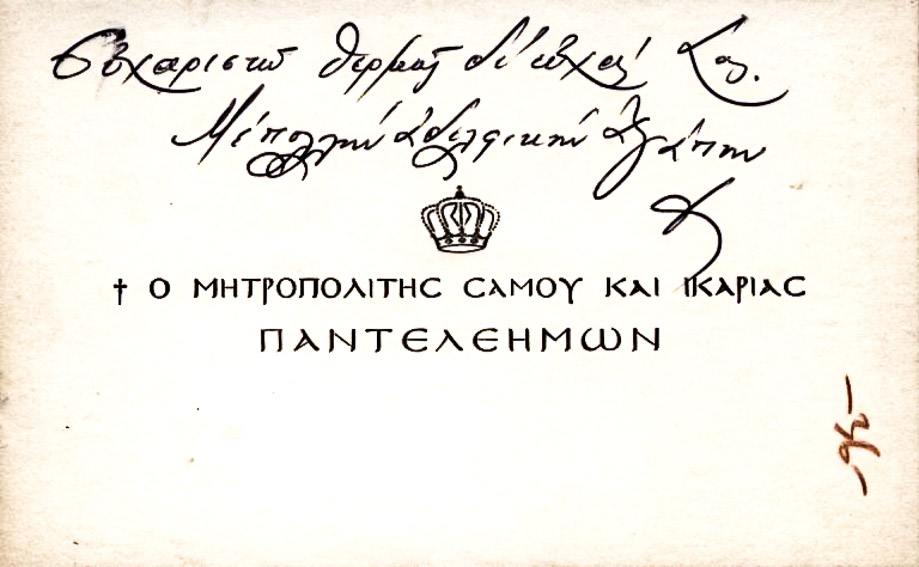 Εὐχαριστῶ θερμῶς δι' εὐχάς Σας.
Μέ πολλήν ἀδελφικήν ἀγάπην
† Ο ΜΗΤΡΟΠΟΛΙΤΗΣ ΣΑΜΟΥ ΚΑΙ ΙΚΑΡΙΑΣ
ΠΑΝΤΕΛΕΗΜΩΝ